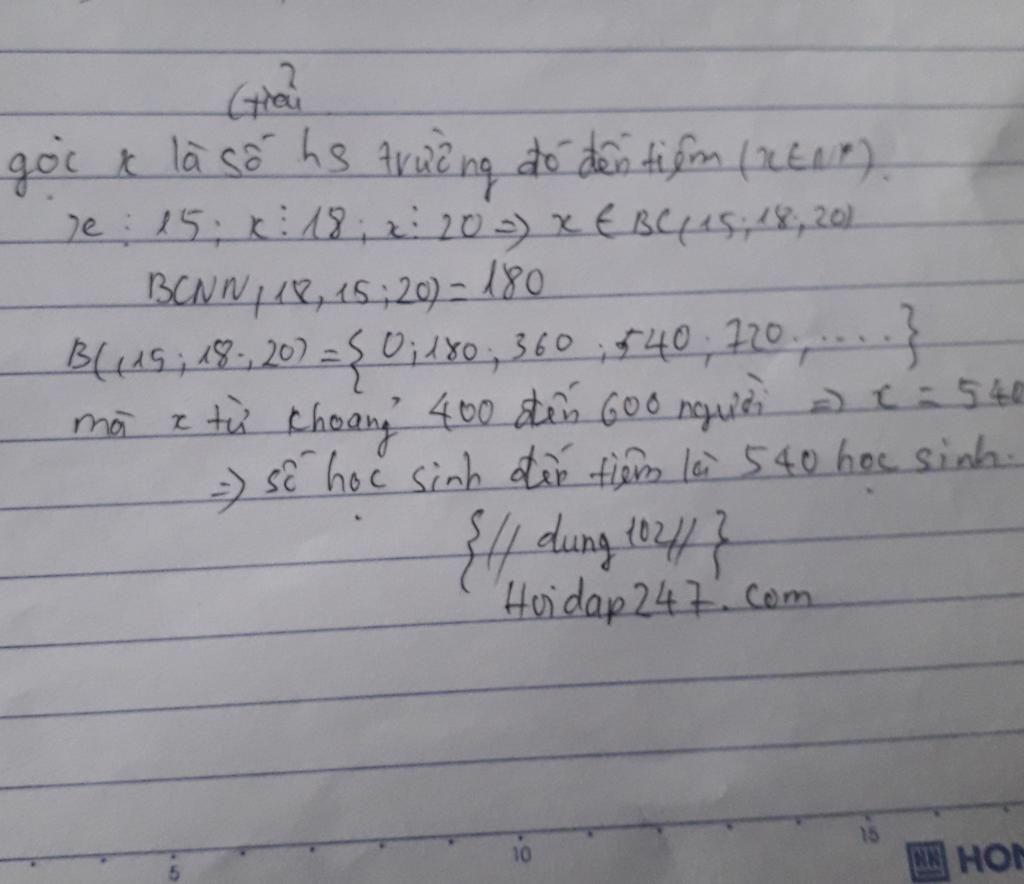 Giải
gọi x là số hs trường đó đến tiệm (x∈N*).
x ⋮ 15; x ⋮ 18; x ⋮ 20 => x ∈ BC(15; 18; 20)
BCNN(18, 15; 20) = 180
BC(15; 18; 20) = { 0; 180; 360; 540; 720; .... }
mà x từ khoảng 400 đến 600 người => x = 540
=> số học sinh đến tiệm là 540 học sinh.
{// dung 102//}
Hoidap247.com
5 10 15
NN HON